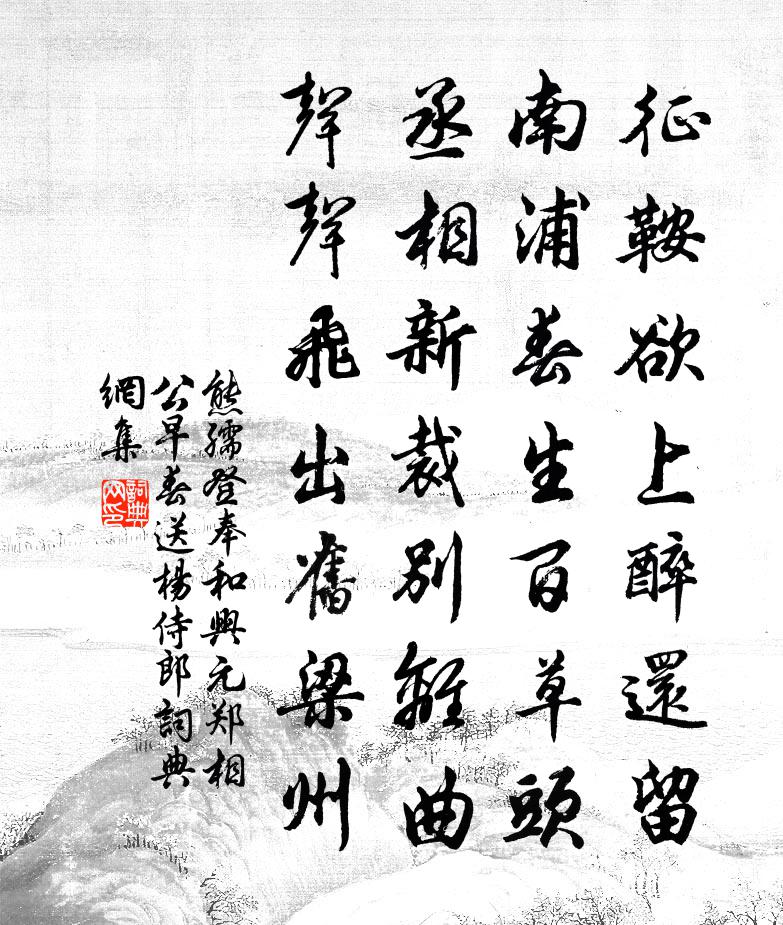 征鞍欲上醉還留
南浦春生百草頭
丞相新裁別離曲
聲聲飛出舊梁州
熊孺登奉和興元郑相
公早春送楊侍郎詞典
網集
詞典
网印